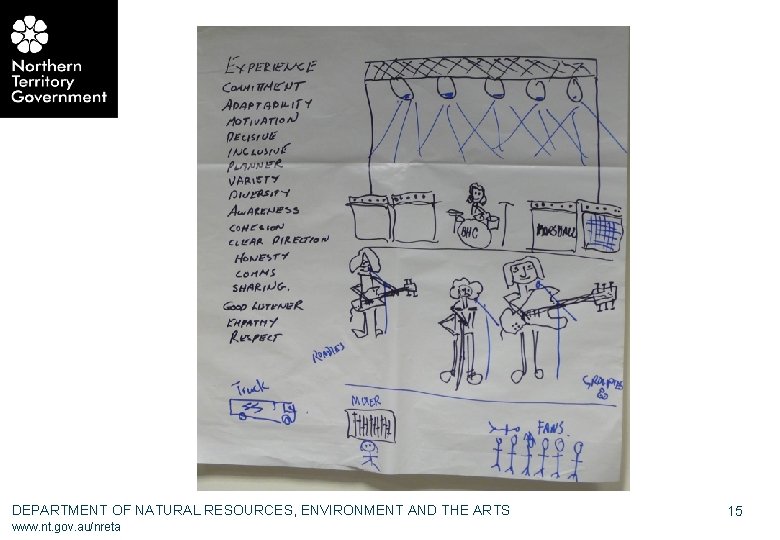 Northern
Territory
Government
EXPERIENCE
COMMITMENT
ADAPTABILITY
MOTIVATION
DECISIVE
INCLUSIVE
PLANNER
VARIETY
DIVERSITY
AWARENESS
COHESION
CLEAR DIRECTION
HONESTY
COMMS
SHARING.
GOOD LISTENER
EMPATHY
RESPECT
OHC
MARSHALL
ROADIES
Truck
MIXER
GROUPIES
FANS.
DEPARTMENT OF NATURAL RESOURCES, ENVIRONMENT AND THE ARTS
www.nt.gov.au/nreta
15